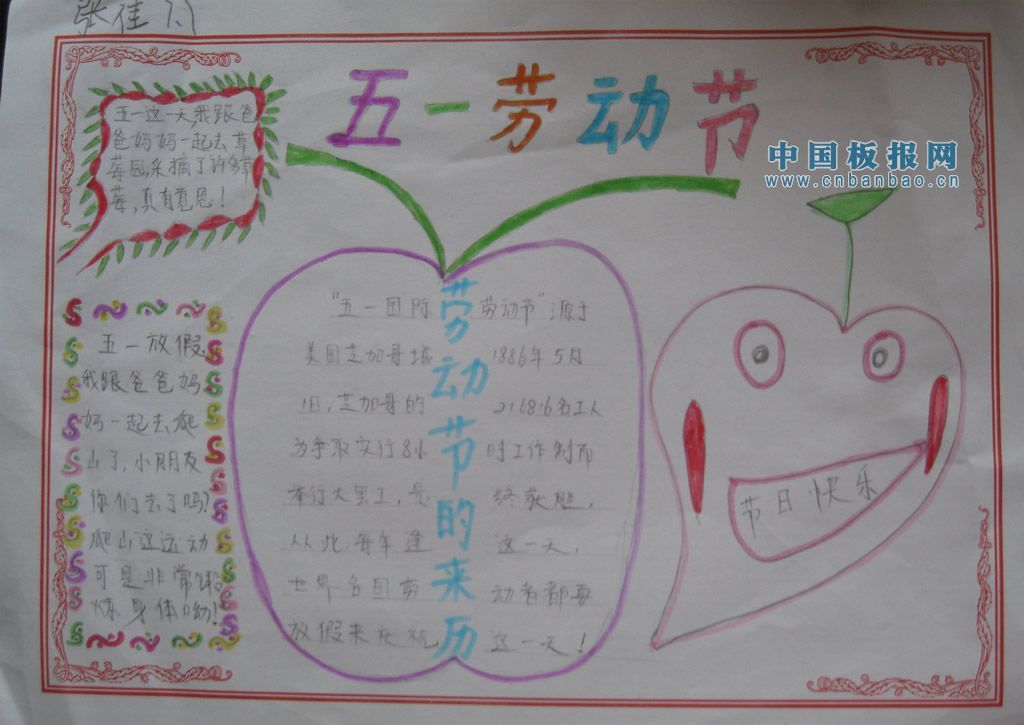 张佳
五一劳动节
中国板报网
www.cnbanbao.cn
五一这一天,我跟爸
爸妈妈一起去草
莓园,采摘了许多草
莓,真有意思!
五一放假
我跟爸爸妈
妈一起去爬
山了,小朋友
你们去了吗?
爬山这运动
可是非常锻
炼身体呦!
劳动节的来历
"五一国际劳动节"源于
美国芝加哥城 1886年5月
1日,芝加哥的 21.6816名工人
为争取实行8小时工作制而
举行大罢工,
终获胜,
从此每年逢这一天,
世界各国劳动者都要
放假来庆祝这一天!
节日快乐